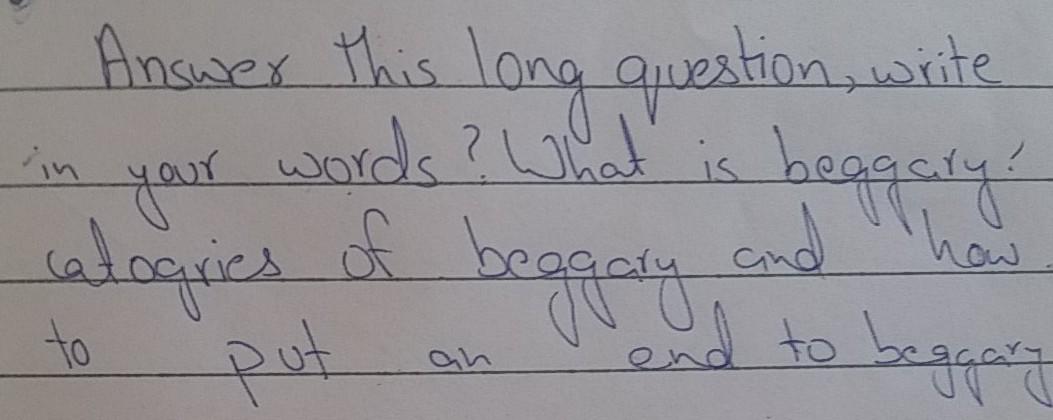 Answer this long question, write
in your words? What is beggary?
catogries of beggary and how
to put an end to beggary